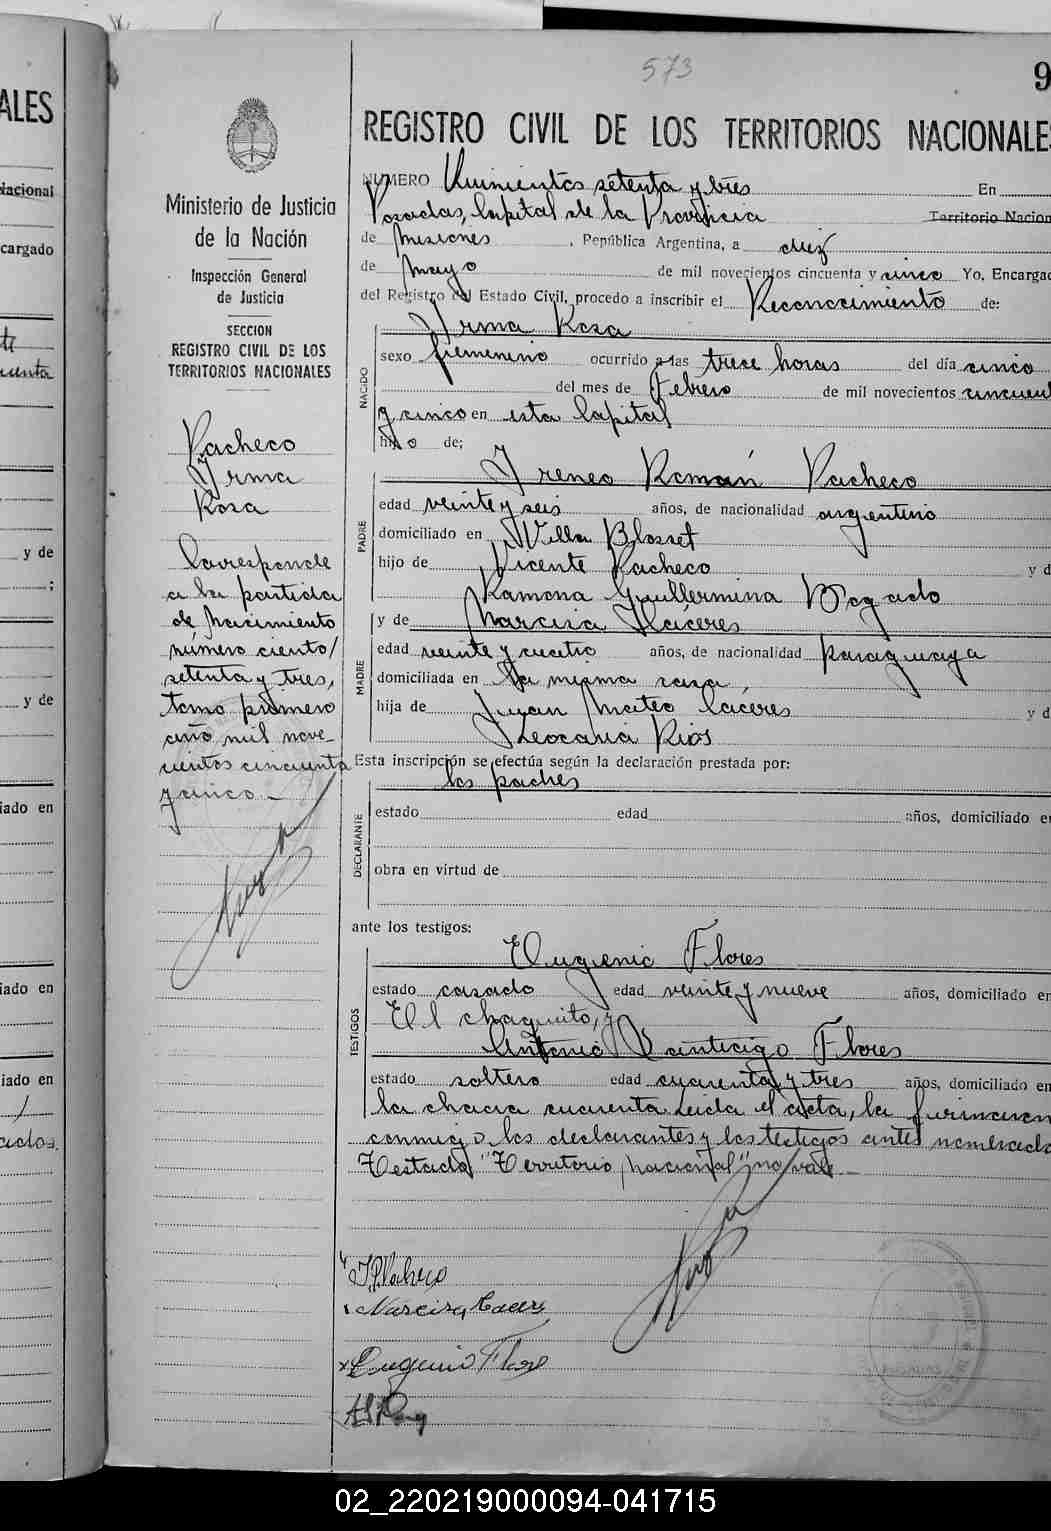 573
9
ALES
REGISTRO CIVIL DE LOS TERRITORIOS NACIONALES
Nacional
cargado
Ministerio de Justicia
de la Nación
Inspección General
de Justicia
SECCION
REGISTRO CIVIL DE LOS
TERRITORIOS NACIONALES
NUMERO Quinientos setenta y tres En
Posadas, Capital de la Provincia Territorio Nacion
de Misiones , República Argentina, a diez
de mayo de mil novecientos cincuenta y cinco Yo, Encargad
del Registro del Estado Civil, procedo a inscribir el Reconocimiento de:
Irma Rosa
NACIDO
sexo femenino ocurrido a las trece horas del día cinco
del mes de Febrero de mil novecientos cincuent
y cinco en esta Capital
hijo de;
Pacheco
Irma
Rosa
Corresponde
a la partida
de Nacimiento
número ciento/
setenta y tres,
tomo primero
año mil nove-
cientos cincuenta
y cinco.-
PADRE
Ireneo Román Pacheco
edad veinte y seis años, de nacionalidad argentino
domiciliado en Villa Blosset
hijo de Vicente Pacheco y d
Ramona Guillermina Bogado
MADRE
y de Narcisa Cáceres
edad veinte y cuatro años, de nacionalidad paraguaya
domiciliada en la misma casa,
hija de Juan Mateo Caceres y d
Leocaria Rios
Esta inscripción se efectúa según la declaración prestada por:
los padres
DECLARANTE
estado edad años, domiciliado en
obra en virtud de
ante los testigos:
TESTIGOS
Eugenio Flores
estado casado edad veinte y nueve años, domiciliado en
El chaquito, y
Antonio Flores
estado soltero edad cuarenta y tres años, domiciliado en
la chacra cuarenta Leida el acta, la
conmigo los declarantes y los testigos antes nombrado
Testado "Territorio Nacional" no vale
y de
y de
iado en
iado en
iado en
I.R.Pacheco
Narcisa Caceres
Eugenio Flores
02_220219000094-041715